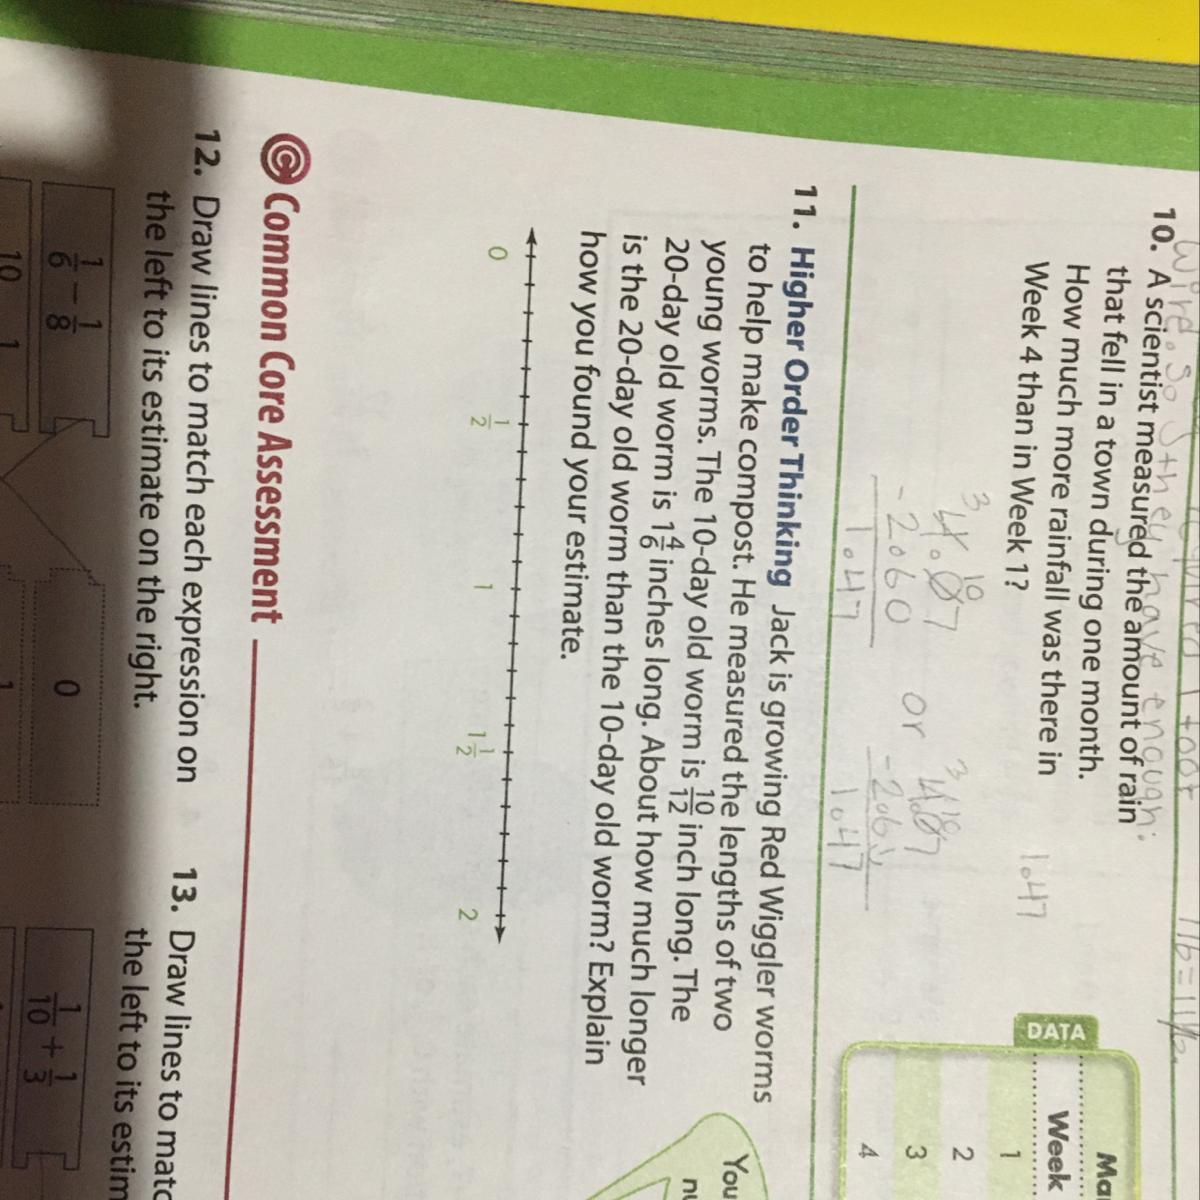 wire. So they have enough.
10. A scientist measured the amount of rain
that fell in a town during one month.
How much more rainfall was there in
Week 4 than in Week 1?
1.47
3 10
4.07
- 2.60
1.47
or
3 10
4.07
- 2.6
1.47
DATA
Week
1
2
3
4
11. Higher Order Thinking Jack is growing Red Wiggler worms
to help make compost. He measured the lengths of two
young worms. The 10-day old worm is 10/12 inch long. The
20-day old worm is 1 4/6 inches long. About how much longer
is the 20-day old worm than the 10-day old worm? Explain
how you found your estimate.
You
0 1/2 1 1 1/2 2
Common Core Assessment
12. Draw lines to match each expression on
the left to its estimate on the right.
1/6 - 1/8
0
10 1
1
13. Draw lines to matc
the left to its estim
1/10 + 1/3